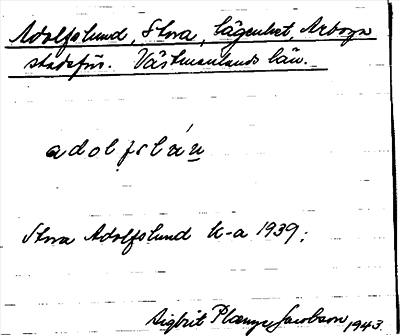 Adolfslund, Stora, lägenhet, Arboga
stadsförs. Västmanlands län.
adolfslún
Stora Adolfslund k-a 1939.
Sigbrit Plænge Jacobson 1943.